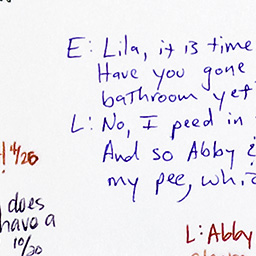 E: Lila, it is time
Have you gone
bathroom yet
L: No, I peed in
And so Abby &
my pee, whic
! 4/28
does
have a
10/20
L: Abby